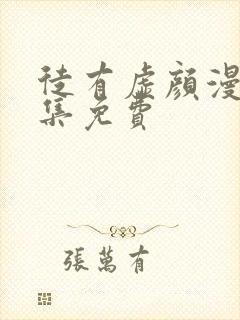 徒有虛顔漫
集免費
張萬有